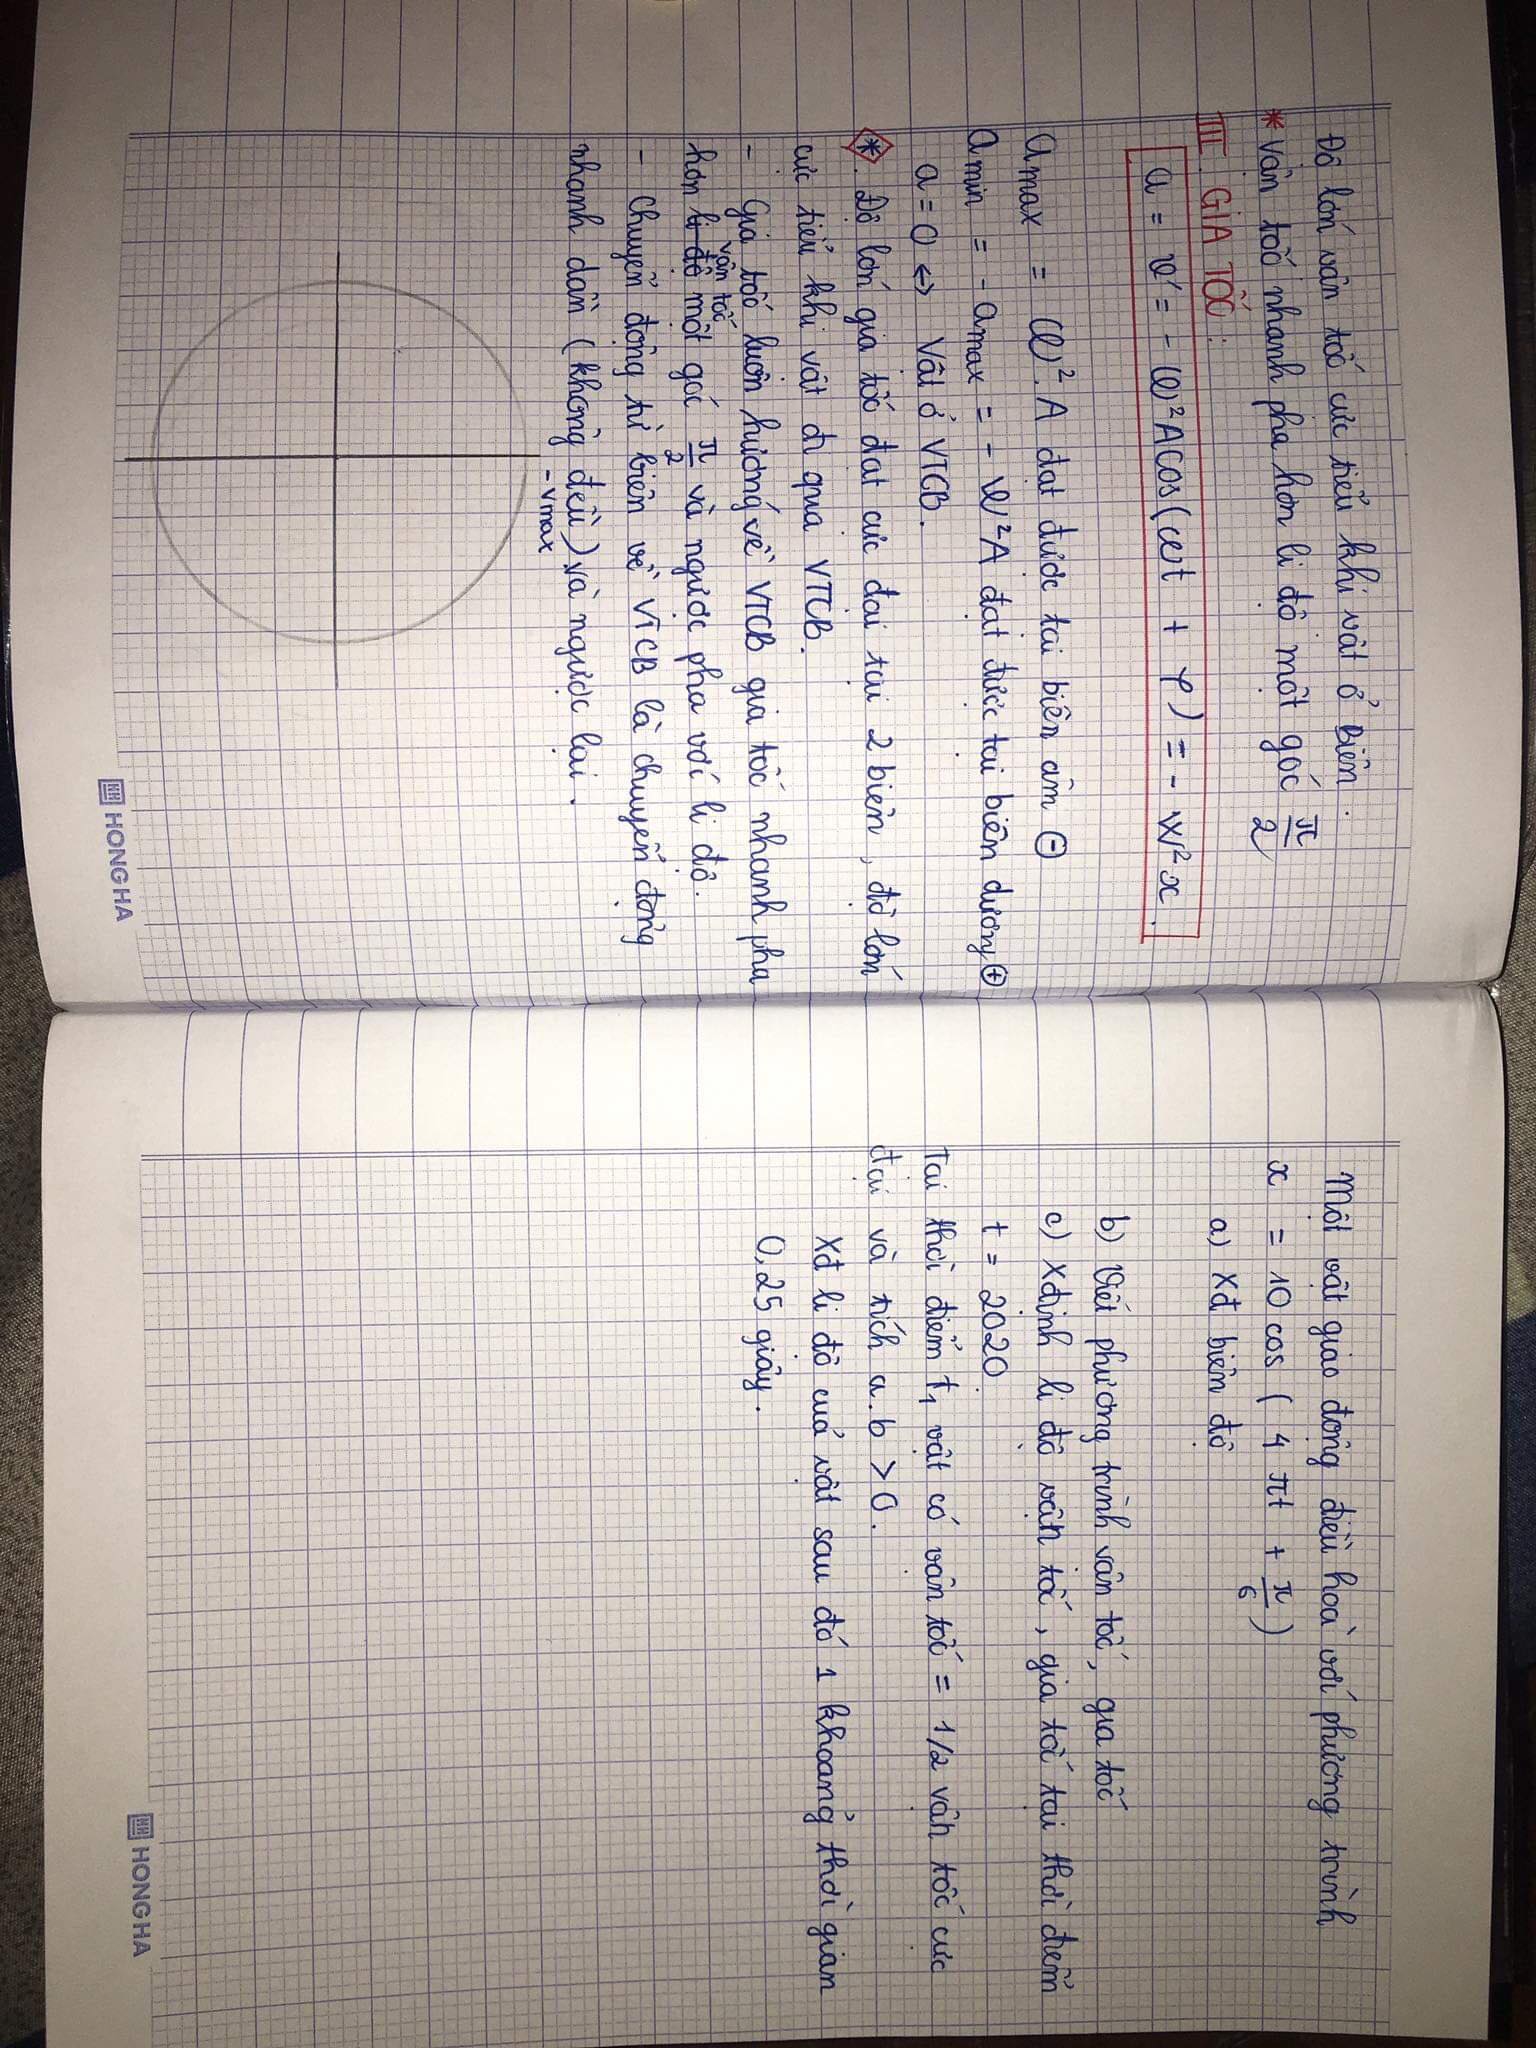 Độ lớn vận tốc cực tiểu khi vật ở Biên.
* Vận tốc nhanh pha hơn li độ một góc π/2
III. GIA TỐC:
a = v' = - ω²Acos(ωt + φ) = - ω²x.
amax = ω².A đạt được tại biên âm ⊖
amin = -amax = - ω²A đạt được tại biên dương ⊕
a = 0 ⇔ Vật ở VTCB.
*. Độ lớn gia tốc đạt cực đại tại 2 biên, độ lớn
cực tiểu khi vật đi qua VTCB.
- Gia tốc luôn hướng về VTCB gia tốc nhanh pha
vận tốc
hơn li độ một góc π/2 và ngược pha với li độ.
- Chuyển động từ biên về VTCB là chuyển động
nhanh dần (không đều) và ngược lại.
-vmax
HONG HA
Một vật giao động điều hoà với phương trình
x = 10 cos ( 4 πt + π/6 )
a) Xđ biên độ
b) Viết phương trình vận tốc, gia tốc
c) Xđịnh li độ vận tốc, gia tốc tại thời điểm
t = 2020.
Tại thời điểm t₁ vật có vận tốc = 1/2 vận tốc cực
đại và tích a.b > 0.
Xđ li độ cuả vật sau đó 1 khoảng thời gian
0,25 giây.
HONG HA